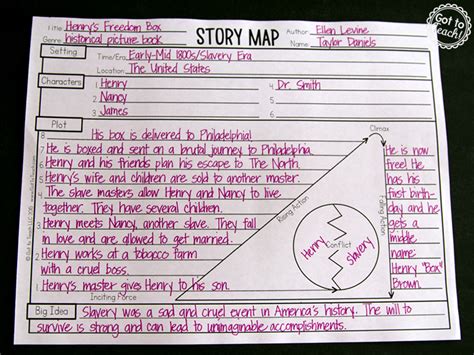 Got to
teach!
Title Henry's Freedom Box
Genre historical picture book
STORY MAP
Author Ellen Levine
Name Taylor Daniels
Setting
Time/Era Early-Mid 1800s/Slavery Era
Location The United States
Characters
1 Henry
2 Nancy
3 James
4 Dr. Smith
5
6
Plot
8 His box is delivered to Philadelphia!
7 He is boxed and sent on a brutal journey to Philadelphia.
6 Henry and his friends plan his escape to The North.
5 Henry's wife and children are sold to another master.
4 The slave masters allow Henry and Nancy to live
together. They have several children.
3 Henry meets Nancy, another slave. They fall
in love and are allowed to get married.
2 Henry works at a tobacco farm
with a cruel boss.
1 Henry's master gives Henry to his son.
Inciting Force
Rising Action
Climax
Falling Action
Henry
Conflict
Slavery
He is now
free! He
has his
first birth-
day and he
gets a
middle
name:
Henry "Box"
Brown.
Big Idea
Slavery was a sad and cruel event in America's history. The will to
survive is strong and can lead to unimaginable accomplishments.